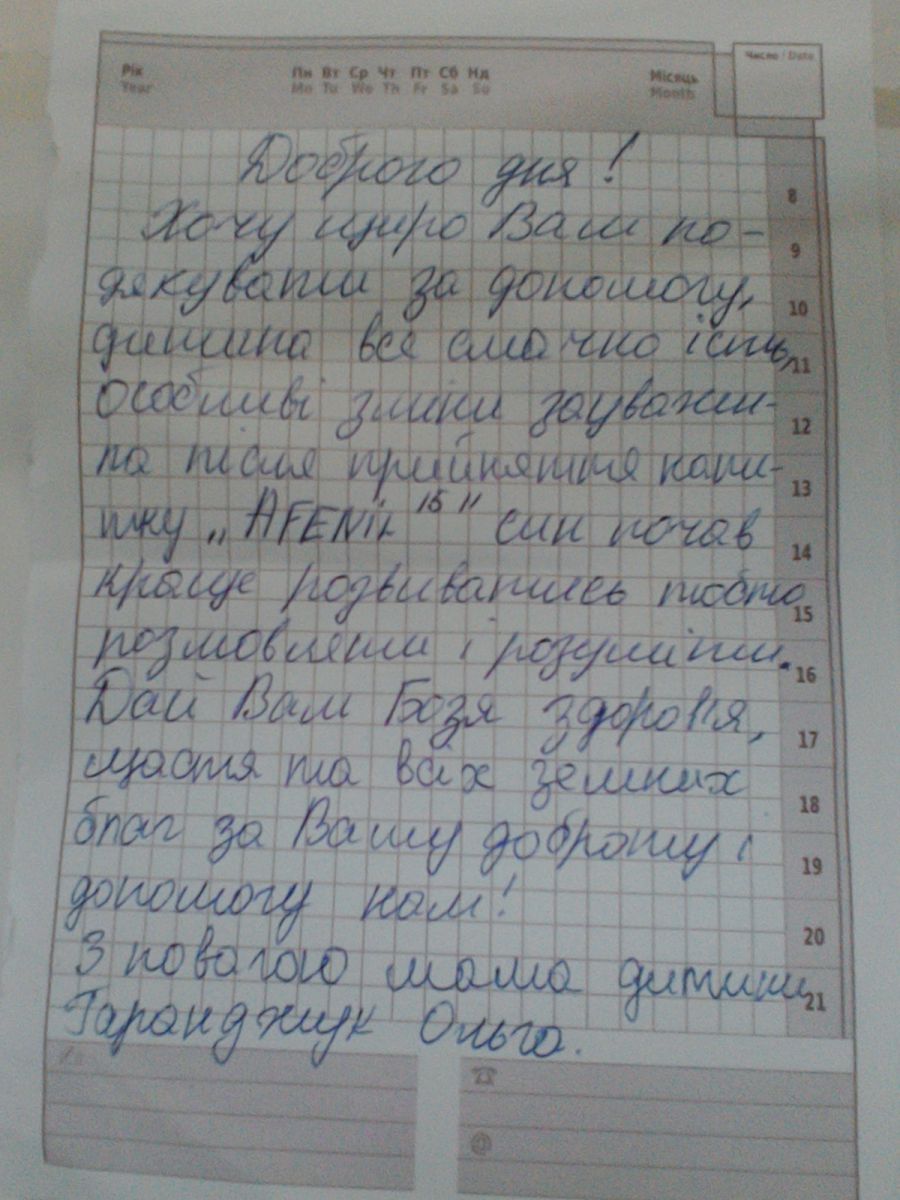 Рік Пн Вт Ср Чт Пт Сб Нд Місяць Число / Date
Year Mo Tu We Th Fr Sa Su Month
Доброго дня!
8
Хочу щиро Вам по-
9
дякувати за допомогу,
10
дитина все смачно їсть,
11
особливі зміни зауважи-
12
ла після прийняття напи-
13
тку „AFENIL 15" син почав
14
краще розвиватись тобто
15
розмовляти і розуміти.
16
Дай Вам Бозя здоров'я,
17
щастя та всіх земних
18
благ за Вашу доброту і
19
допомогу нам!
20
З повагою мама дитини
21
Гаранджук Ольга.